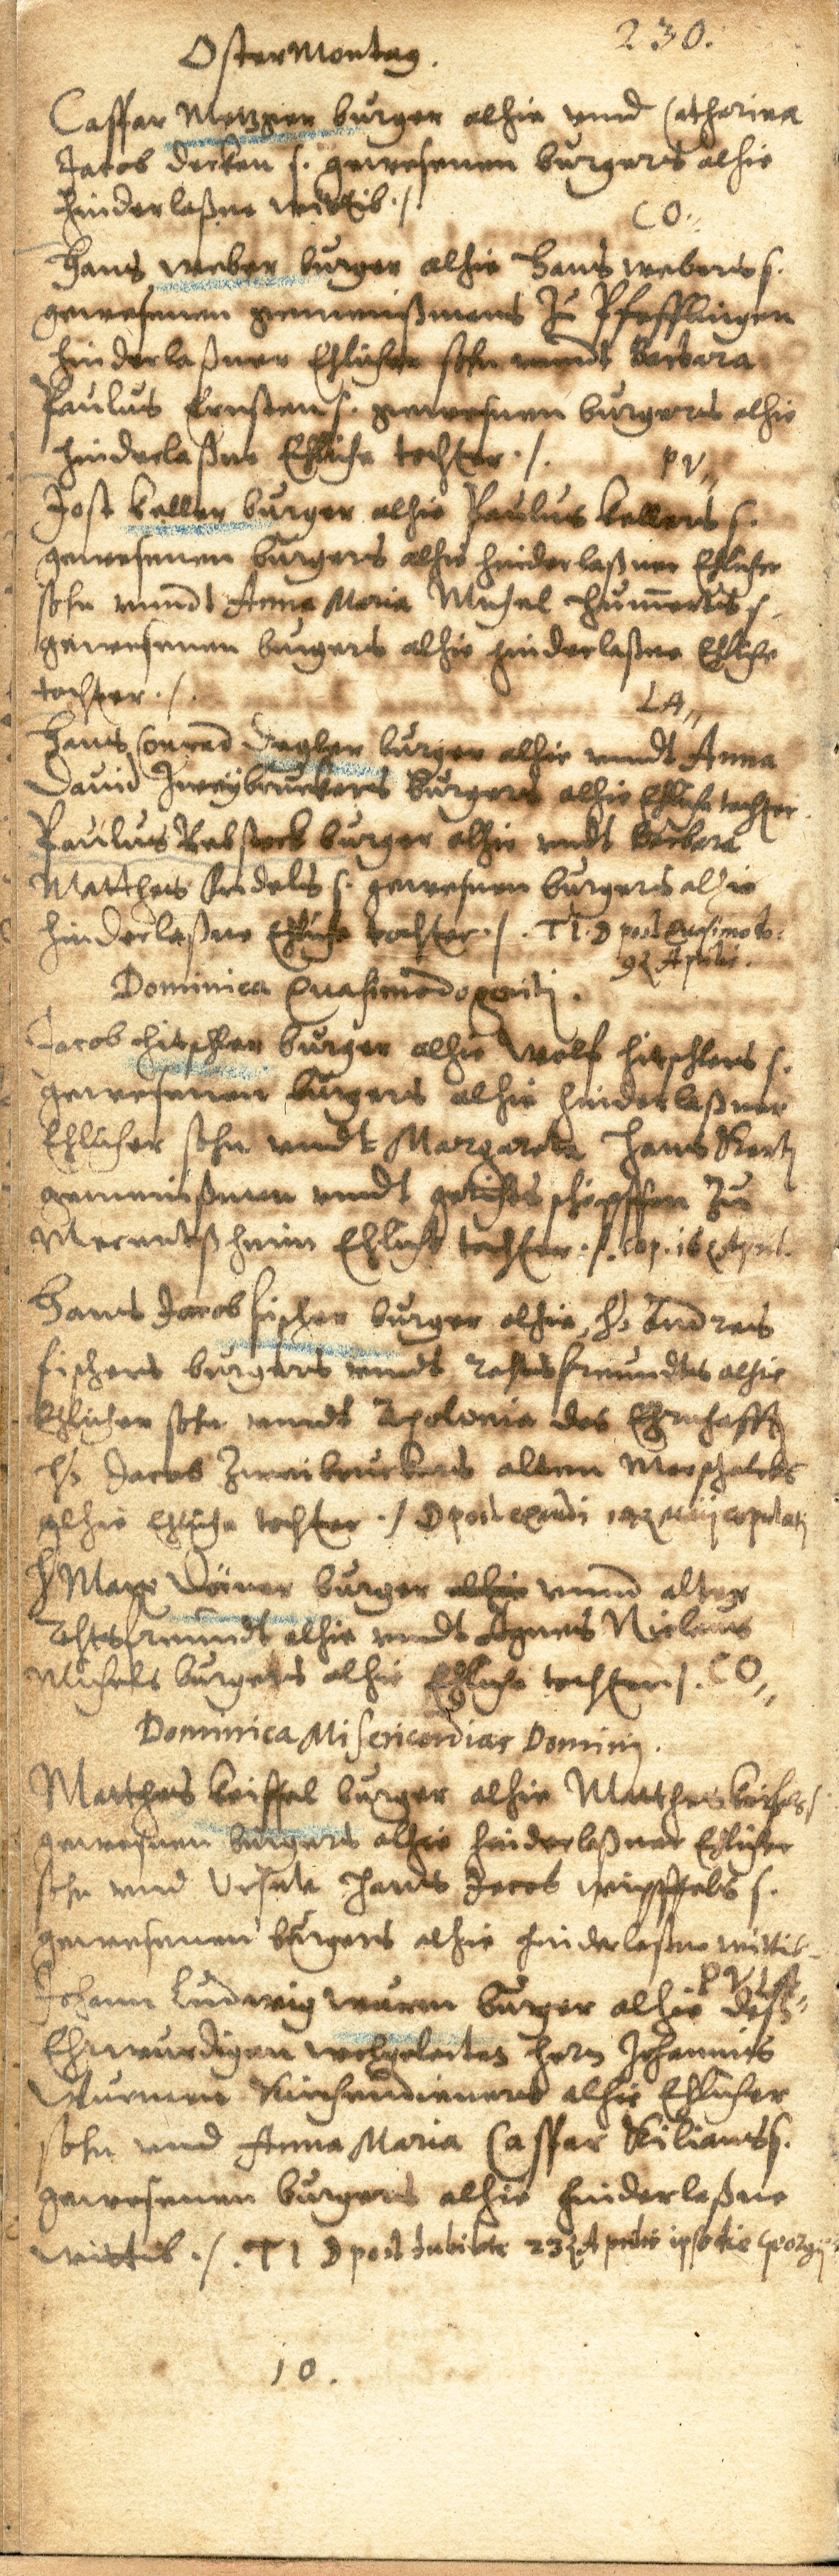 230.
OsterMontag.
Caspar Metzger burger alhie vnnd Catharina
Jacob Decken s. gewesenen burgers alhie
hinderlaßne wittib ./.
CO.
Hans weber burger alhie Hans webers s.
gewesenen gemeinßmans zu Pfefflingen
hinderlaßner Ehlicher sohn vnndt Barbara
Paulus Ernsten s. gewesnen burgers alhie
hinderlaßne Ehliche tochter ./.
PV
Jost Keller burger alhie Paulus Kellers s.
gewesenen burgers alhie hinderlaßner Ehlicher
sohn vnndt Anna Maria Michel s.
gewesenen burgers alhie hinderlaßne Ehliche
tochter ./.
LA
Hans Conrad burger alhie vnndt Anna
David Zweÿbruckers burgers alhie Ehliche tochter.
Paulus Rebstock burger alhie vndt Barbara
Matthes s. gewesnen burgers alhie
hinderlaßne Ehliche tochter ./. TI. D post Quasimodo.
9 Aprilis.
Dominica Quasimodogeniti.
Jacob Hirschler burger alhie Wolf Hirschlers s.
gewesenen burgers alhie hinderlaßner
Ehlicher sohn vndt Margareta Hans
gemeinßman vndt gerichts schöpffen zu
Ehliche tochter ./. cop. 16 April.
Hans Jacob Fischer burger alhie, H. Andreas
Fischers burgers vnndt Rahtsfreundts alhie
Ehlicher sohn vnndt Apolonia des Ehrnhafft
H. Jacob Zweibruckers alten Marschalcks
alhie Ehliche tochter ./ D post Exaudi Maij copulati
H Marx burger alhie vnnd alter
Rahtsfreundt alhie vndt Agnes Niclaus
Michels burgers alhie Ehliche tochter ./. CO
Dominica Misericordias Domini.
Matthes Keissel burger alhie Matthes Keissels s
gewesnen burgers alhie hinderlaßner Ehlicher
sohn vnd Ursula Hans Jacob s.
gewesenen burgers alhie hinderlaßne wittib
PV LA
Johann Ludwig Wurm burger alhie deß
Ehrwürdigen wolgelerten Herrn Johannis
Wurmen Kirchendieners alhie Ehlicher
sohn vnd Anna Maria Caspar Kilians s.
gewesenen burgers alhie hinderlaßne
wittib ./. TI D post Jubilate 23 Aprilis ipso die Georgij
10.